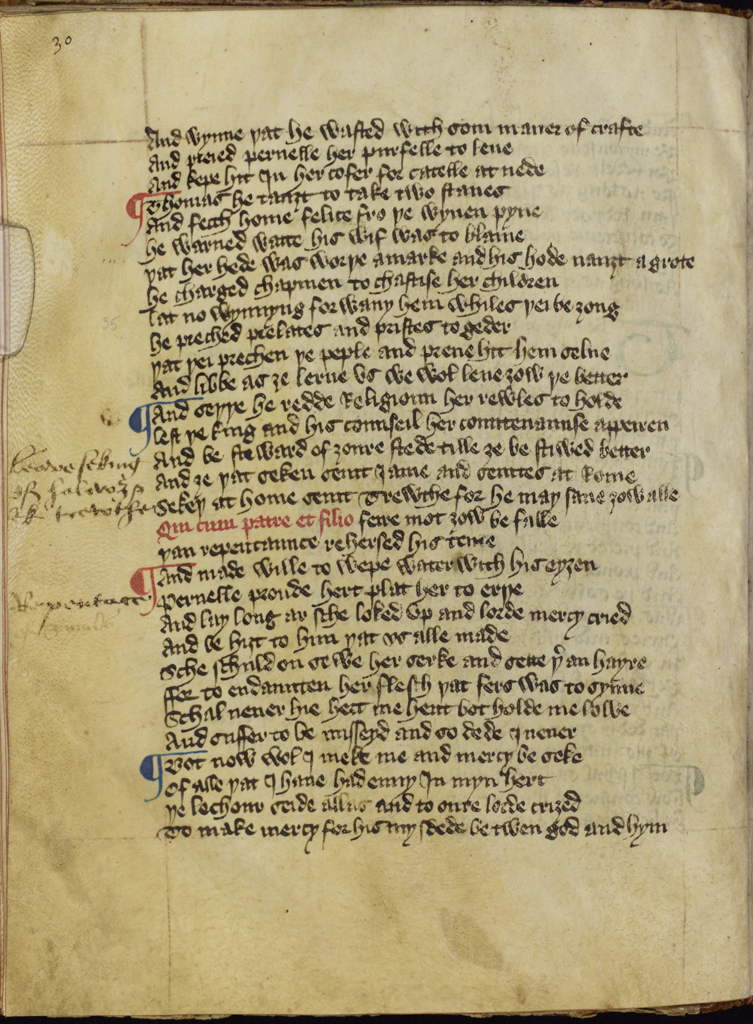 30
And wynne yat he wasted with som maner of crafte
And preied pernelle her purfelle to leue
And kepe hit In her cofer for catelle at nede
Thomas he tauzt to take two staues
And fech home felice fro ye wynen pyne
he warned watte his wif was to blame
yat her hede was worye a marke and his hode nauzt a grote
he charged chapmen to chastise her children
lat no wynnyng for wany hem whiles yei be zong
he preched prelates and pristes to geder
yat yei prechen ye peple and preue hit hem selue
And libbe as ze lerne vs we wol leue zow ye better
And seyye he redde Religioun her rewles to holde
lest ye king and his counseil her countenaunse apeiren
And be steward of zoure stede tille ze be stiwed better
And ze yat seken seint Iame and seintes at Rome
Sekey at home seint Trewthe for he may saue zow alle
Qui cum patre et filio feire mot zow be falle
yan repentaunce rehersed his teme
And made wille to wepe water with his eyzen
Pernelle proude hert plat her to erye
And lay long ar sche loked vp and lorde mercy cried
And be hizt to him yat vs alle made
Sche schuld on sewe her serke and sette yer an hayre
For to endaunten her flesch yat fers was to synne
Schal neuer hie hert me hent bot holde me lowe
And suffer to be misseyd and so dede I neuer
Bot now wol I meke me and mercy be seke
Of alle yat I haue had enuy In myn hert
ye lechour seide allas and to oure lorde crized
To make mercy for his mysdede be twen god and hym
Leave seking
of
Repentace